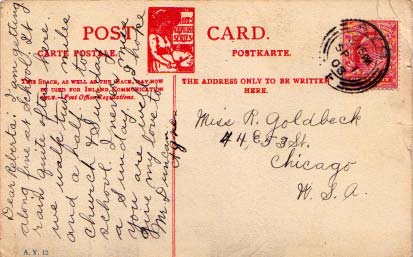 POST CARD.
CARTE POSTALE.
POSTKARTE.
THIS SPACE, AS WELL AS THE BACK, MAY NOW
BE USED FOR INLAND COMMUNICATION
ONLY.—Post Office Regulations.
THE ADDRESS ONLY TO BE WRITTEN
HERE.
Dear Roberta: I am getting
along fine at school. It
rains quite often here.
we walk two mile
and a half to
church every
school. I
a Sunday
you are well
give my love to
Mr. Duncan.
Agnes
Miss R. Goldbeck
44, E 53 St.
Chicago
U. S. A.
A. Y. 12